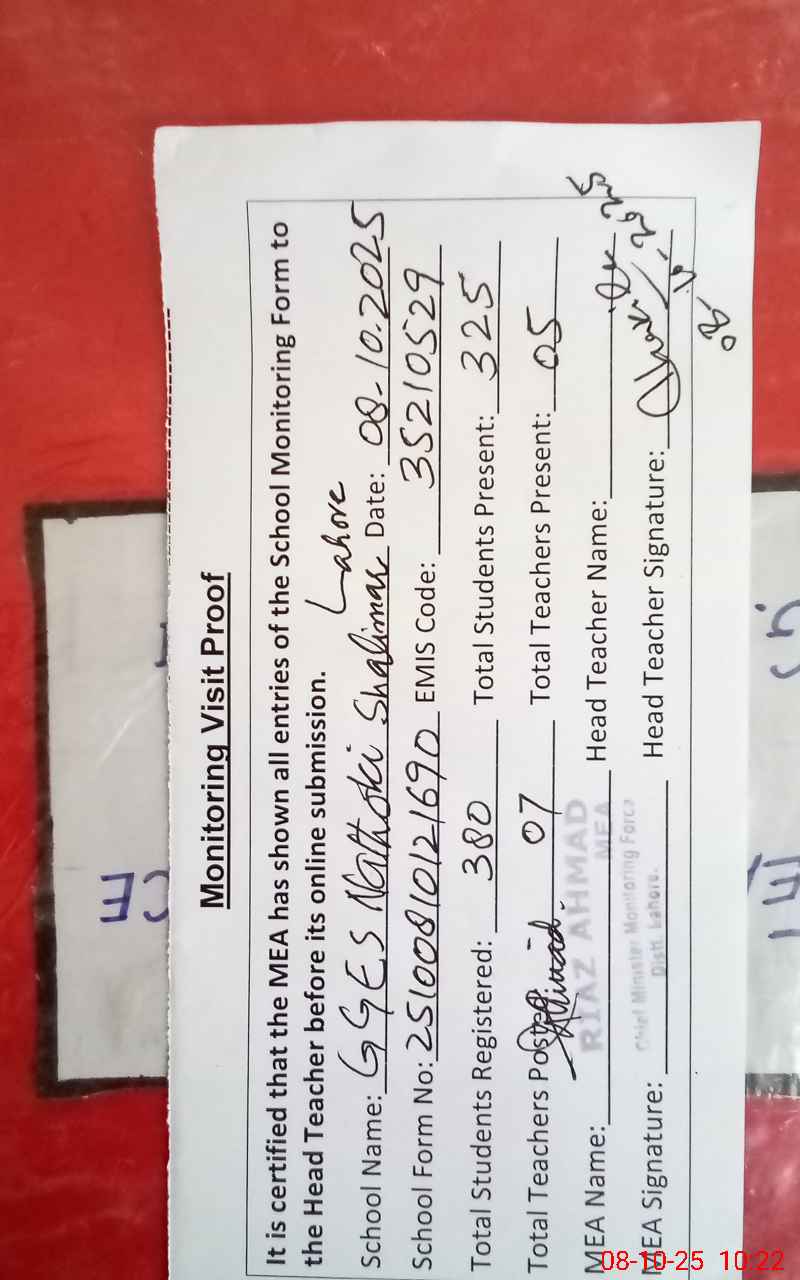 Monitoring Visit Proof
It is certified that the MEA has shown all entries of the School Monitoring Form to
the Head Teacher before its online submission.
Lahore
School Name: GGES Nathoki Shalimar Date: 08-10.2025
School Form No: 25100810121690 EMIS Code: 35210529
Total Students Registered: 380 Total Students Present: 325
Total Teachers Posted: 07 Total Teachers Present: 05
RIAZ AHMAD
MEA
MEA Name: Head Teacher Name:
Chief Minister Monitoring Force
Distt. Lahore.
MEA Signature: Head Teacher Signature:
08-10-2025
08-10-25 10:22